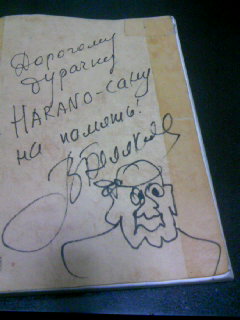 Дорогому
дурачку
HARANO-сану
на память!